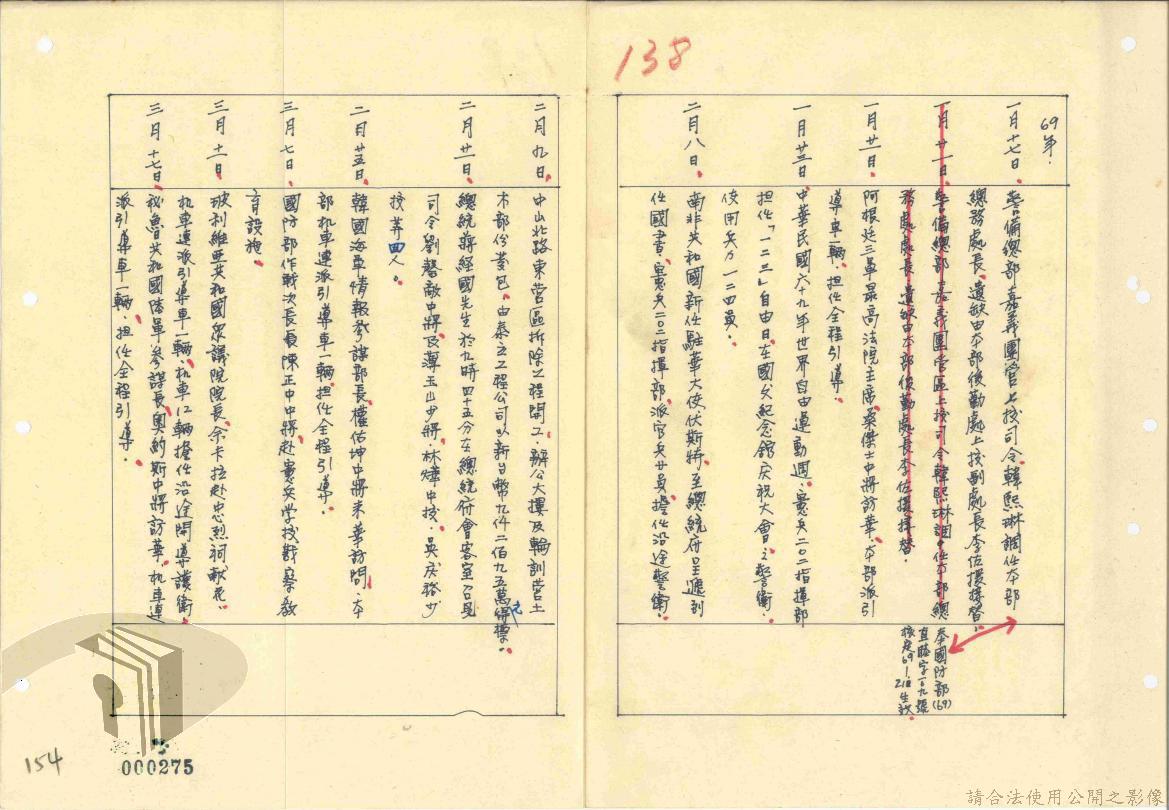 138
69年
一月十七日
警備總部嘉義團管上校司令韓熙琳調任本部
總務處長,遺缺由本部後勤處上校副處長李佐援接替。
一月廿一日
警備總部嘉義團管區上校司令韓熙琳調任本部總
務處處長,遺缺由本部後勤處處長李佐援接替。
奉國防部(69)
直睦字一六九號
核定69.1.21生效
一月廿一日
阿根廷三軍最高法院主席桑傑士中將訪華,本部派引
導車一輛,担任全程引導。
一月廿三日
中華民國六十九年世界自由運動週,憲兵二〇二指揮部
担任「一二三」自由日,在國父紀念舘庆祝大會之警衛,
使用兵力一二四員。
二月八日
南非共和國新任駐華大使伏斯特,至總統府呈遞到
任國書,憲兵二〇二指揮部,派官兵廿員,擔任沿途警衛。
二月九日
中山北路東營區拆除工程開工,辦公大樓及輪訓營土
木部份發包,由泰立工程公司以新台幣九仟二佰九五萬元得標。
二月廿一日
總統蔣經國先生於九時四十五分在總統府會客室召見
司令劉罄敵中將及薄玉山少將,林燁中校,吳庆裕少
校等四人。
二月廿五日
韓國海軍情報參謀部長權佑坤中將來華訪問,本
部机車連派引導車一輛担任全程引導。
三月七日
國防部作戰次長陳正中中將,赴憲兵学校戡察教
育設施。
三月十一日
玻利維亞共和國眾議院院長,佘卡拉赴忠烈祠献花,
机車連派引導車一輛,机車12輛擔任沿途開導護衛。
三月十七日
秘魯共和國陸軍參謀長奧約斯中將訪華,机車連
派引導車一輛,担任全程引導。
154
000275
請合法使用公開之影像